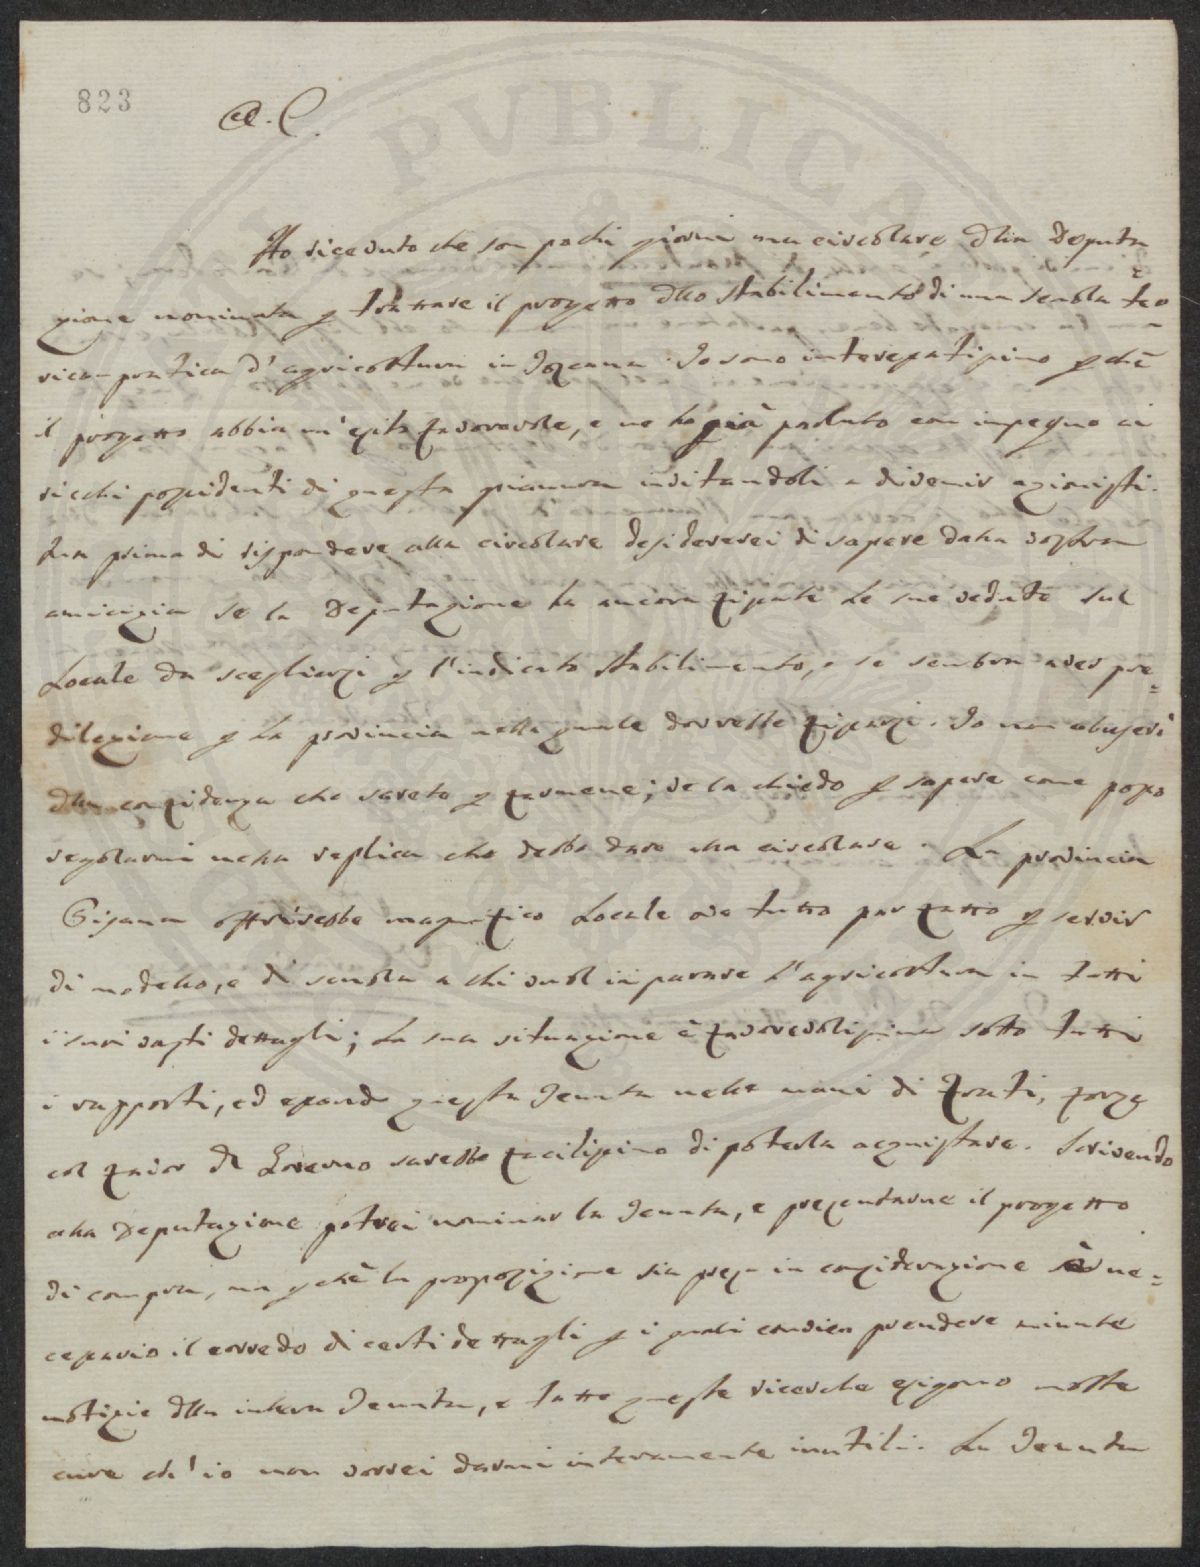 823
A. C.
Ho ricevuto che son pochi giorni una circolare dlla Deputa
zione nominata p trattare il progetto dllo Stabilimento di una scuola teo
rica-pratica d'agricoltura in Toscana. Io sono interessatissimo pchè
il progetto abbia un'esito favorevole, e ne ho già parlato con impegno ai
ricchi possidenti di questa pianura invitandoli a divenir azionisti.
Ma prima di rispondere alla circolare desidererei di sapere dalla vostra
amicizia se la Deputazione ha ancora fissate le sue vedute sul
Locale da scegliersi p l'indicato stabilimento, e se sembra aver pre=
dilezione p la provincia nella quale dovrebbe fissarsi. Io non abuserò
dlla confidenza che sarete p farmene; ve la chiedo p sapere come posso
regolarmi nella replica che debbo dare alla circolare. La provincia
Pisana offrirebbe magnifico Locale ove tutto par fatto p servir
di modello, e di scuola a chi vuol imparare l'agricoltura in tutti
i suoi vasti dettagli; la sua situazione è favorevolissima sotto tutti
i rapporti, ed essendo questa Tenuta nelle mani di Frati, forse
col favor dl Governo sarebbe facilissimo di poterla acquistare. Scrivendo
alla Deputazione potrei nominar la Tenuta, e presentarne il progetto
di compra, ma pchè la proposizione sia presa in considerazione è ne=
cessario il corredo di certi dettagli p i quali convien prendere minute
notizie dlla intera Tenuta, e tutte queste ricerche esigono molte
cure ch'io non vorrei darmi interamente inutili. La Tenuta